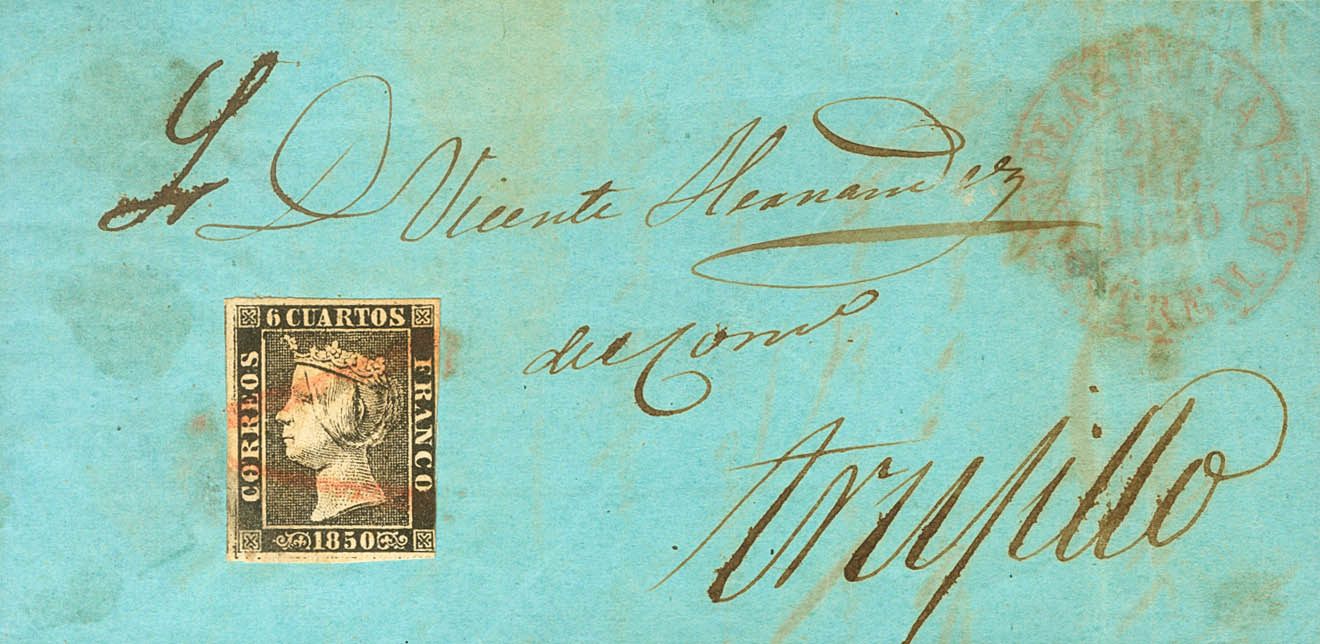 S. D. Vicente Hernandez
del Com.o
Trujillo
6 CUARTOS
CORREOS
FRANCO
1850
PLASENCIA
24
1850
EXTREM. B.